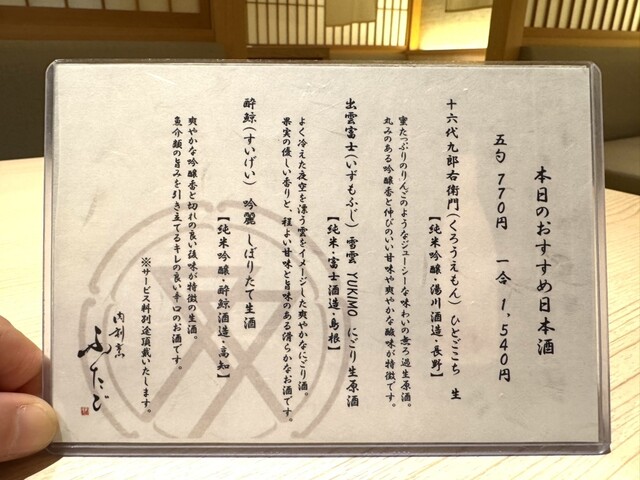 本日のおすすめ日本酒
五勺 770円 一合 1,540円
十六代九郎右衛門(くろうえもん) ひとごこち 生
【純米吟醸・湯川酒造・長野】
蜜たっぷりのりんごのようなジューシーな味わいの無ろ過生原酒。
丸みのある吟醸香と伸びのいい甘味や爽やかな酸味が特徴です。
出雲富士(いずもふじ) 雪雲 YUKIMO にごり生原酒
【純米・富士酒造・島根】
よく冷えた夜空を漂う雲をイメージした爽やかなにごり酒。
果実の優しい香りと、程よい甘味と旨味のある滑らかなお酒です。
酔鯨(すいげい) 吟麗 しぼりたて生酒
【純米吟醸・酔鯨酒造・高知】
爽やかな吟醸香と切れの良い後味が特徴の生酒。
魚介類の旨みを引き立てるキレの良い辛口のお酒です。
※サービス料別途頂戴いたします。
肉割烹
ふたご